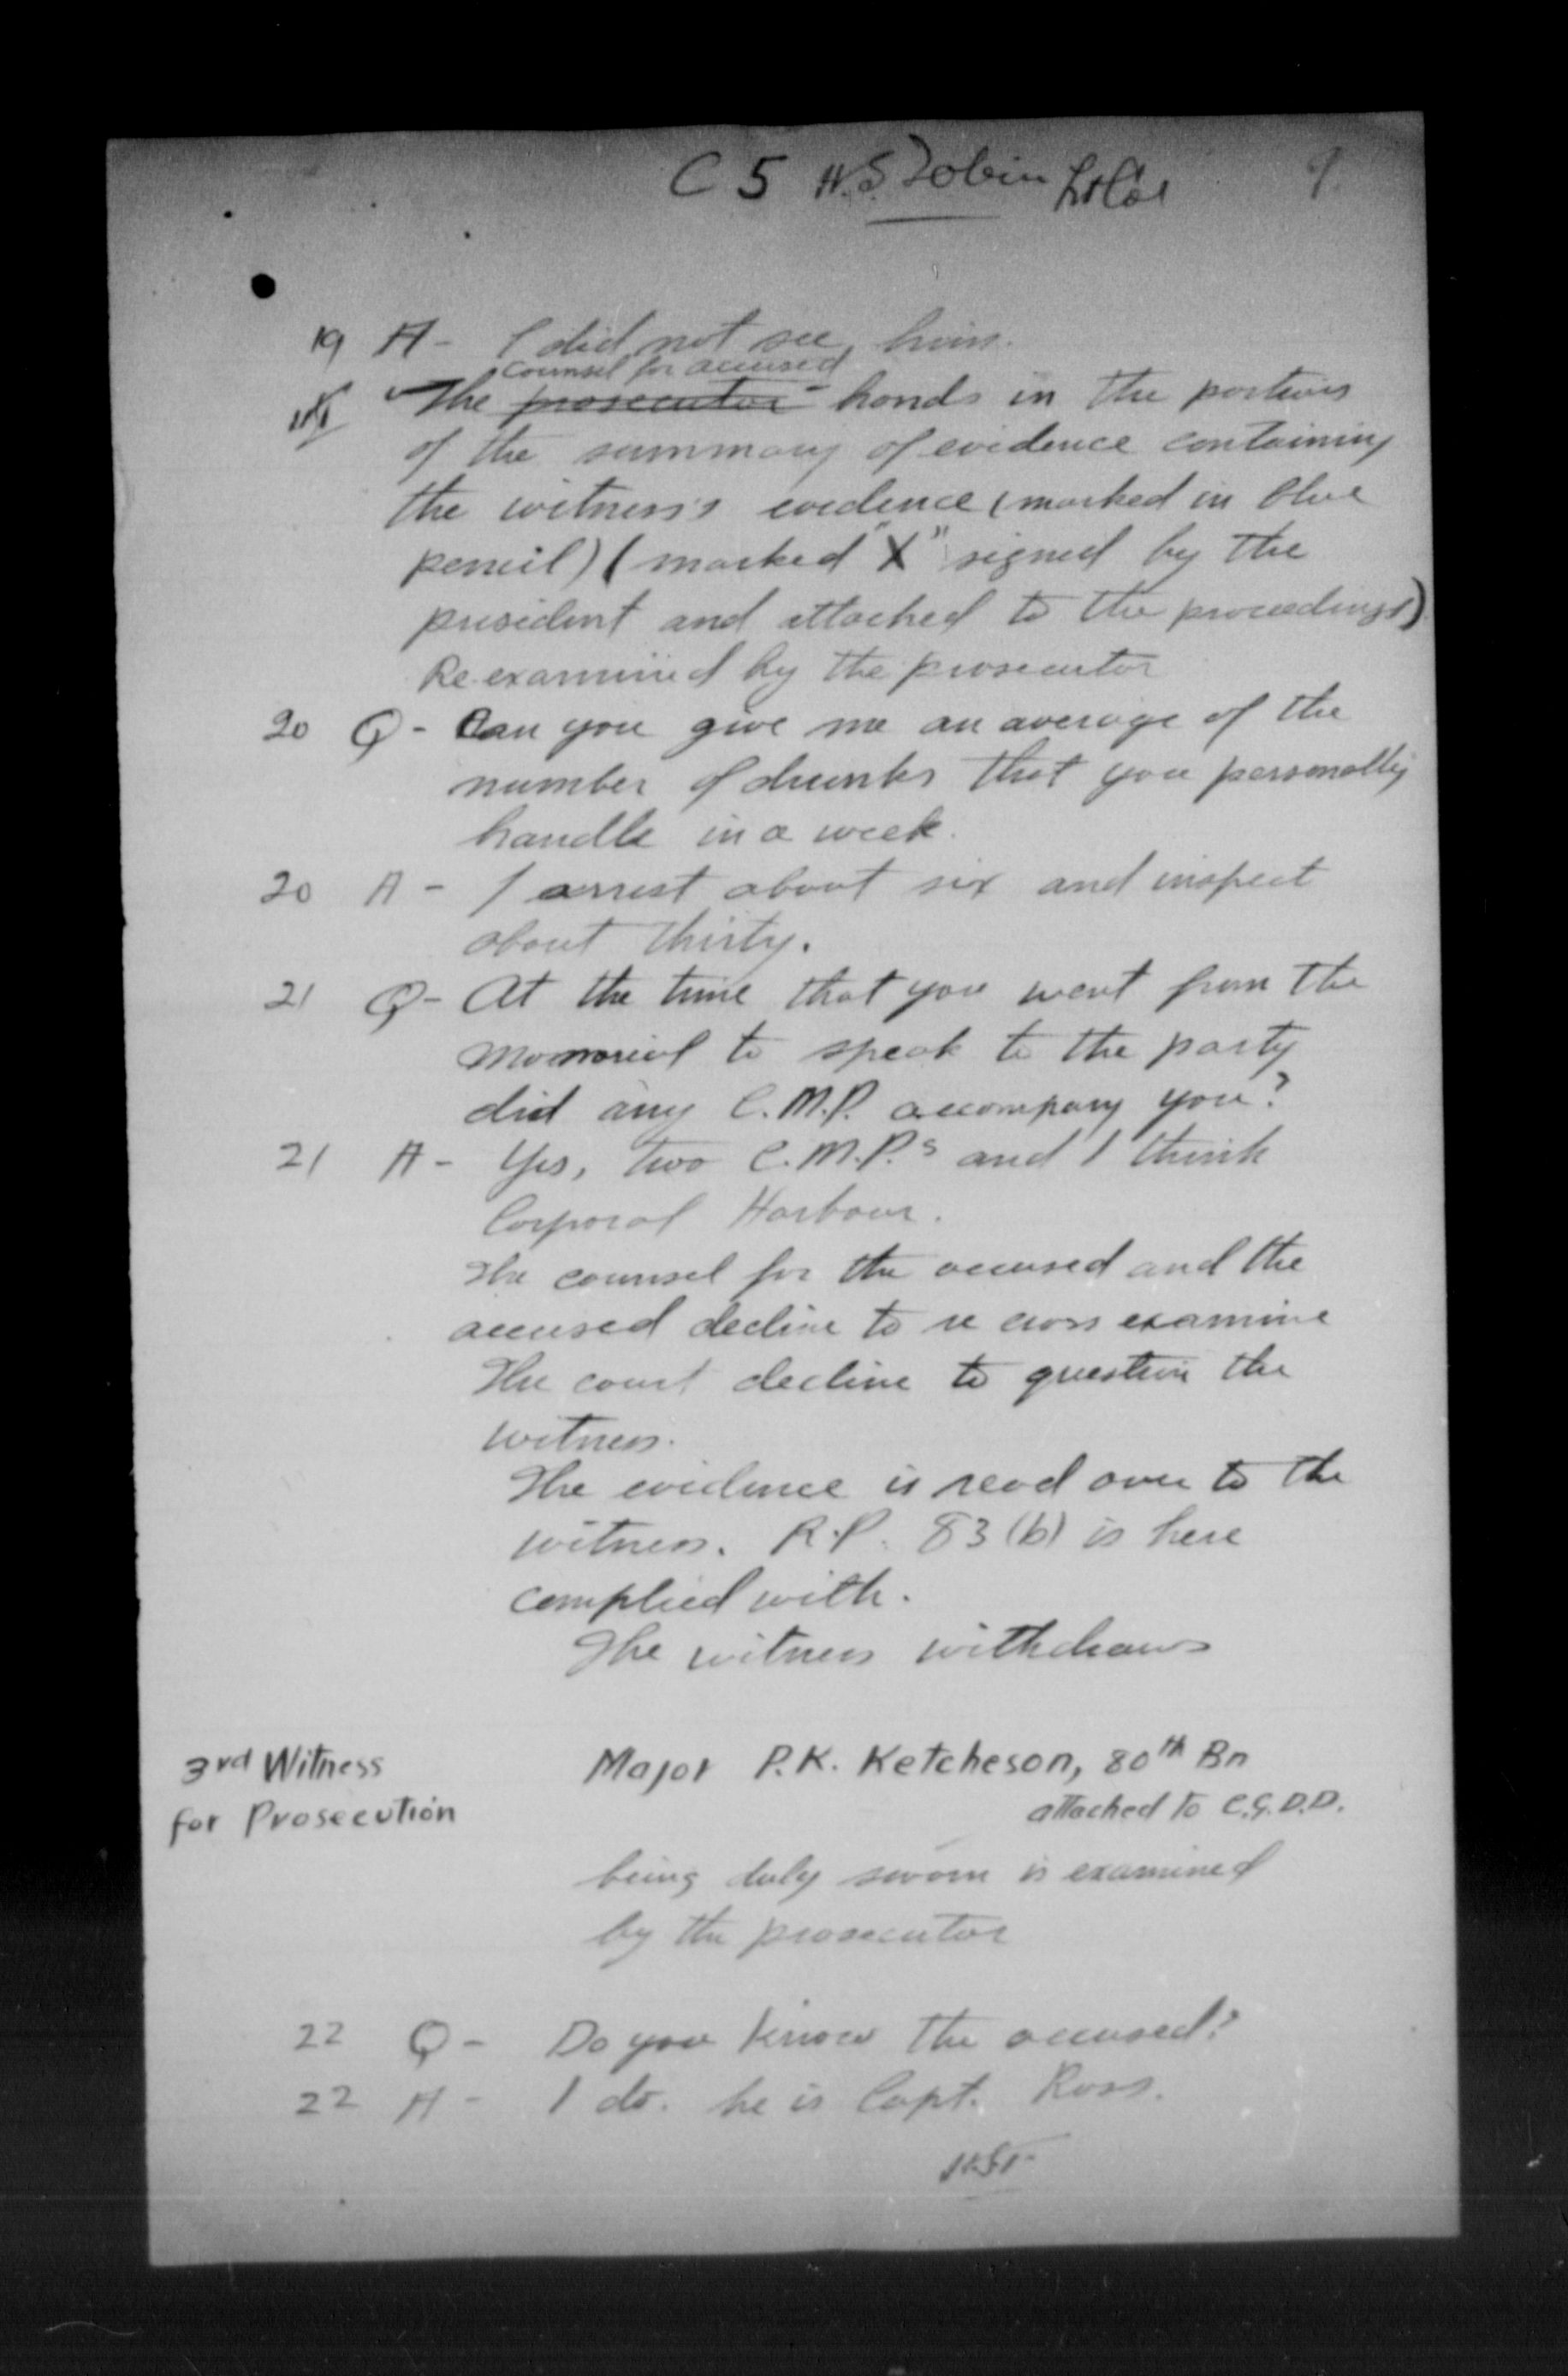 C 5 H.S. Tobin Lt Col 9.
19 A - I did not see him.
counsel for accused
The prosecutor hands in the portions
of the summary of evidence containing
the witness's evidence (marked in blue
pencil) (marked "X" signed by the
president and attached to the proceedings)
Re-examined by the prosecutor
20 Q - Can you give me an average of the
number of drunks that you personally
handle in a week.
20 A - I arrest about six and inspect
about thirty.
21 Q - At the time that you went from the
Memorial to speak to the party
did any C.M.P. accompany you?
21 A - Yes, two C.M.P.s and I think
Corporal Harbour.
The counsel for the accused and the
accused decline to re cross examine
The court decline to question the
witness.
The evidence is read over to the
witness. R.P. 83 (b) is here
complied with.
The witness withdraws
3rd Witness
for Prosecution
Major P.K. Ketcheson, 80th Bn
attached to C.G.D.D.
being duly sworn is examined
by the prosecutor
22 Q - Do you know the accused?
22 A - I do. he is Capt. Ross.